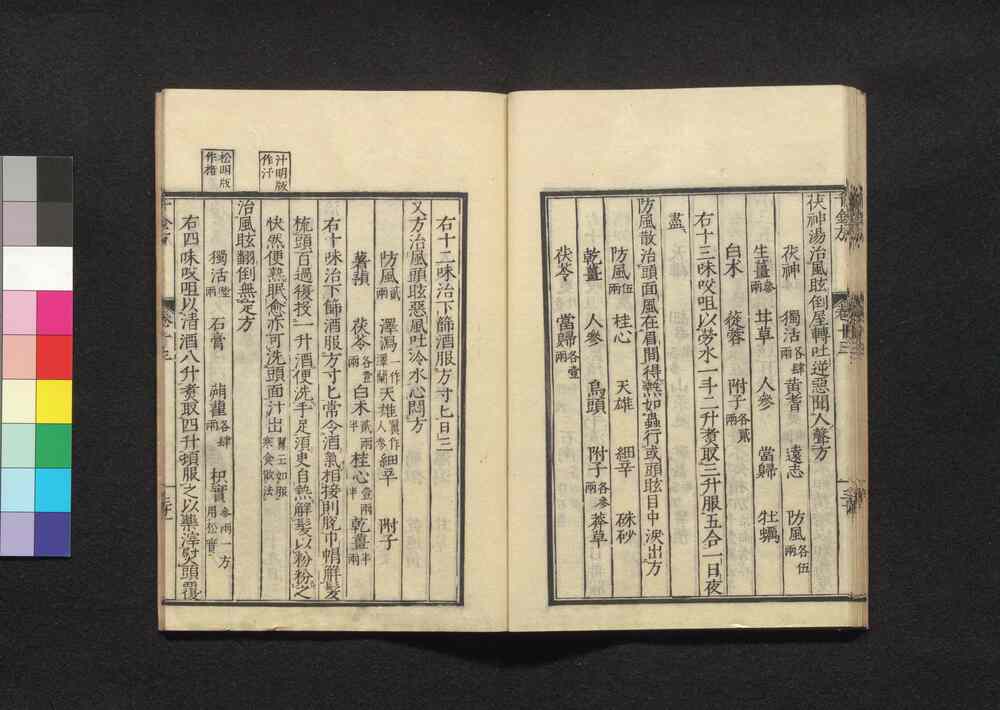 茯神湯治風眩倒屋轉吐逆惡聞人聲方
茯神 獨活各肆兩 黃耆 遠志 防風各伍兩
生薑參兩 甘草 人參 當歸 牡蠣
白朮 蓯蓉 附子各貳兩
右十三味㕮咀以勞水一斗二升煑取三升服五合一日夜
盡
防風散治頭面風在眉間得熱如蟲行或頭眩目中淚出方
防風伍兩 桂心 天雄 細辛 硃砂
乾薑 人參 烏頭 附子各參兩 莽草
茯苓 當歸各壹兩
右十二味治下篩酒服方寸匕日三
又方治風頭眩惡風吐冷水心悶方
防風貳兩 澤瀉一作澤蘭 天雄翼作人參 細辛 附子
薯蕷 茯苓各壹兩 白朮貳兩半 桂心壹兩半 乾薑半兩
右十味治下篩酒服方寸匕常令酒氣相接則脫巾帽解髮
梳頭百過復投一升酒便洗手足須臾自熱解髮以粉粉之
快然便熟眠愈亦可洗頭面汁出翼云如服寒食散法
治風眩翻倒無定方
獨活 石膏 蒴藋各肆兩 枳實參兩一方用松實
右四味㕮咀以清酒八升煑取四升頓服之以藥滓熨頭覆
汁明版作汗
松明版作楮